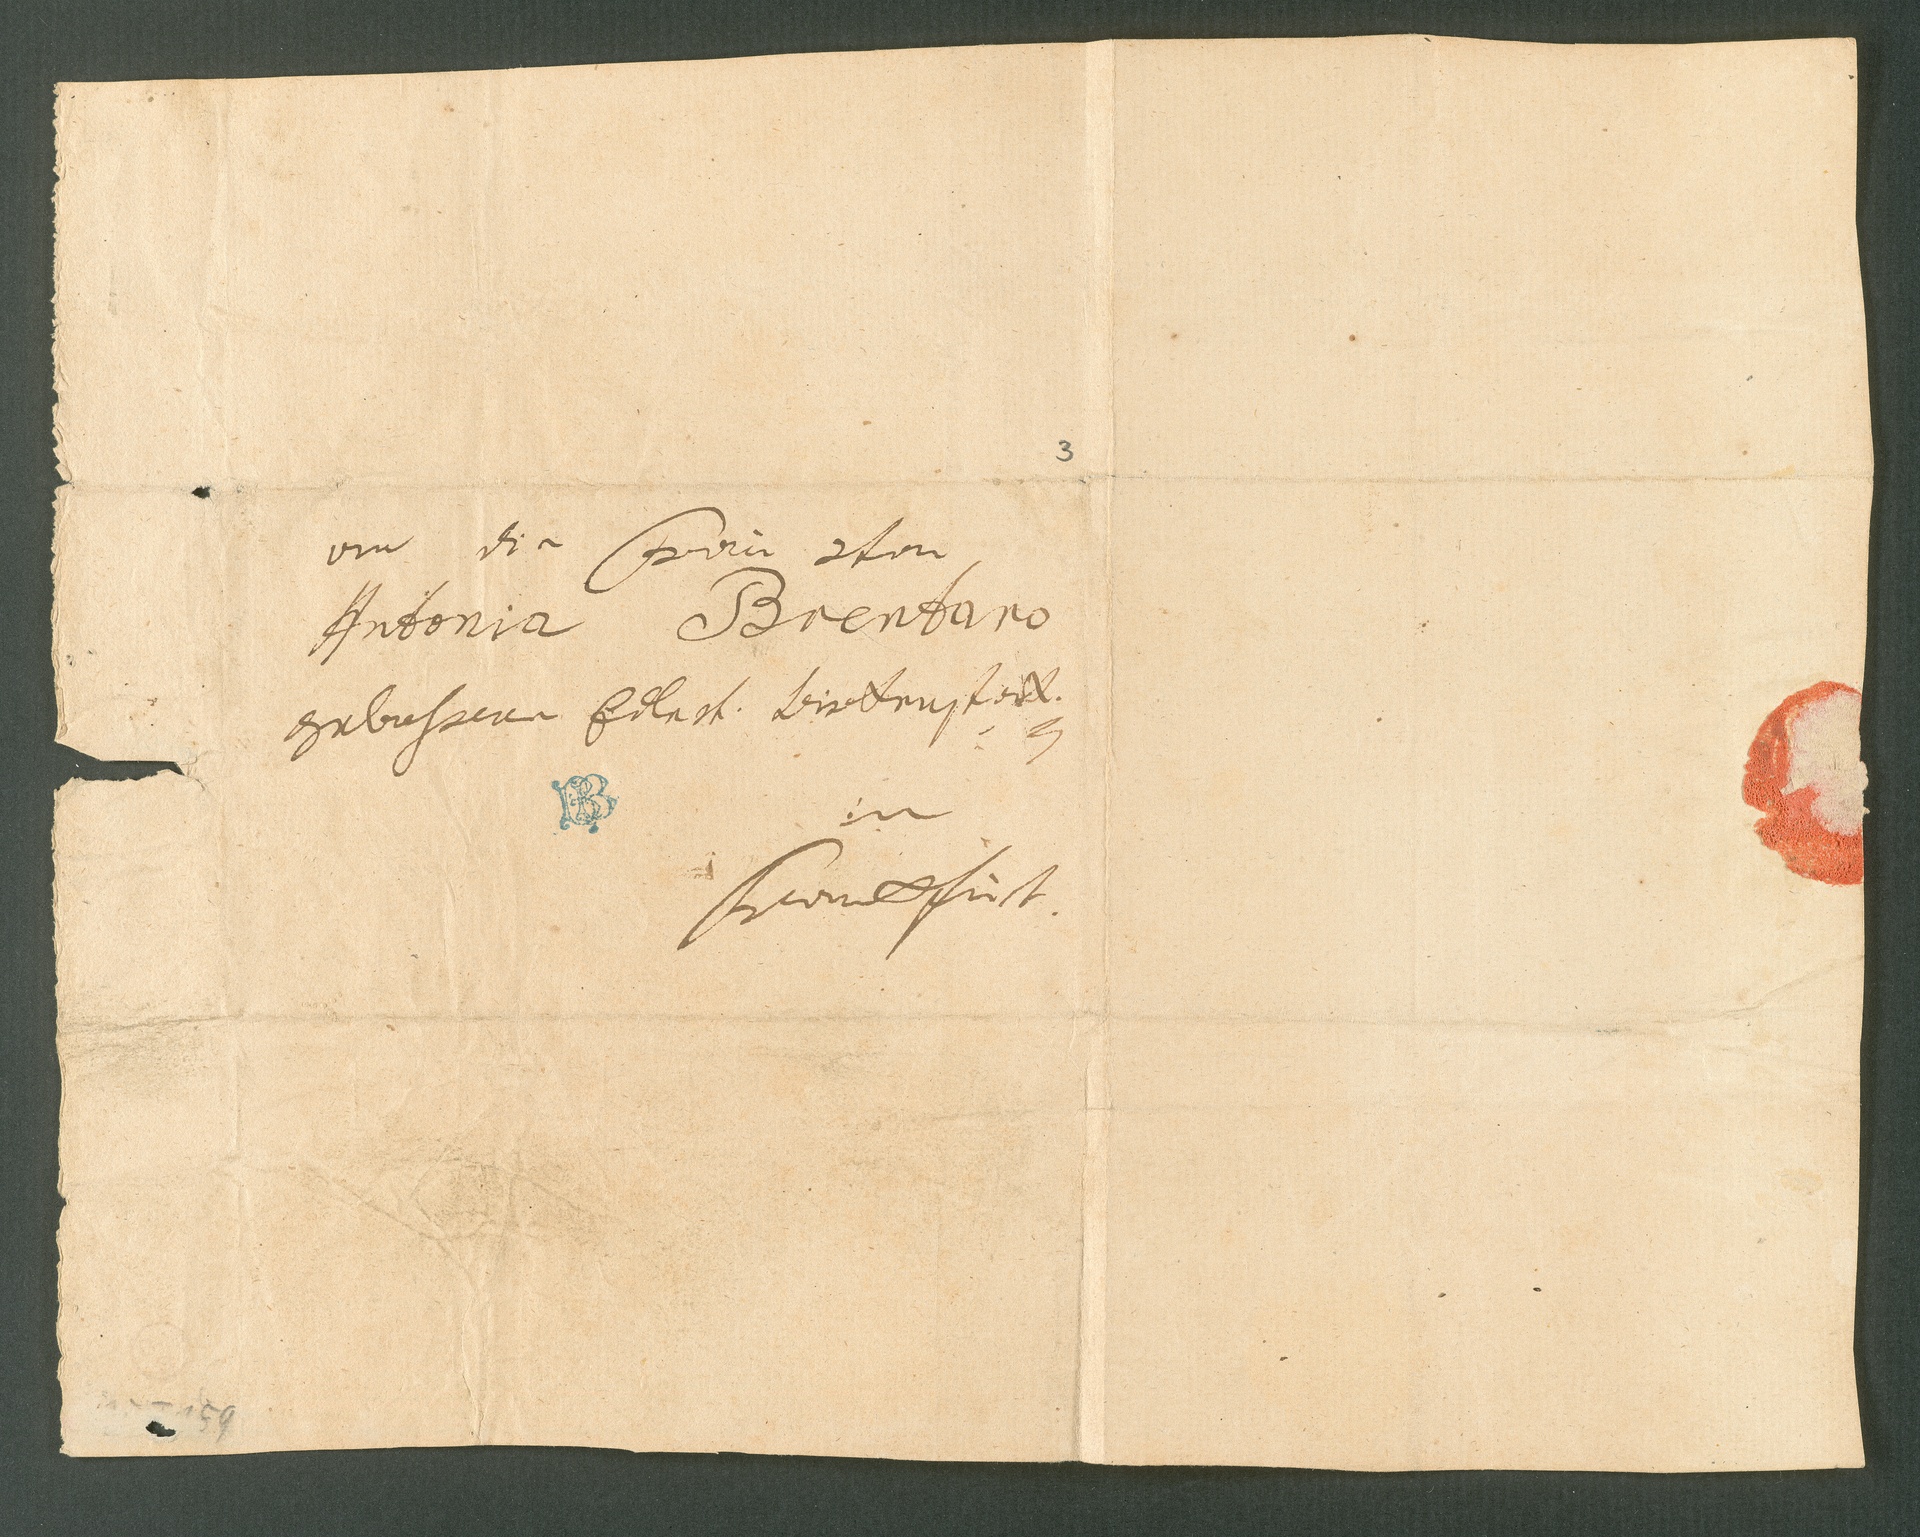 3
An die Frau von
Antonia Brentano
gebohrene Edle v. Birkenstock.
in
Frankfurt.
159